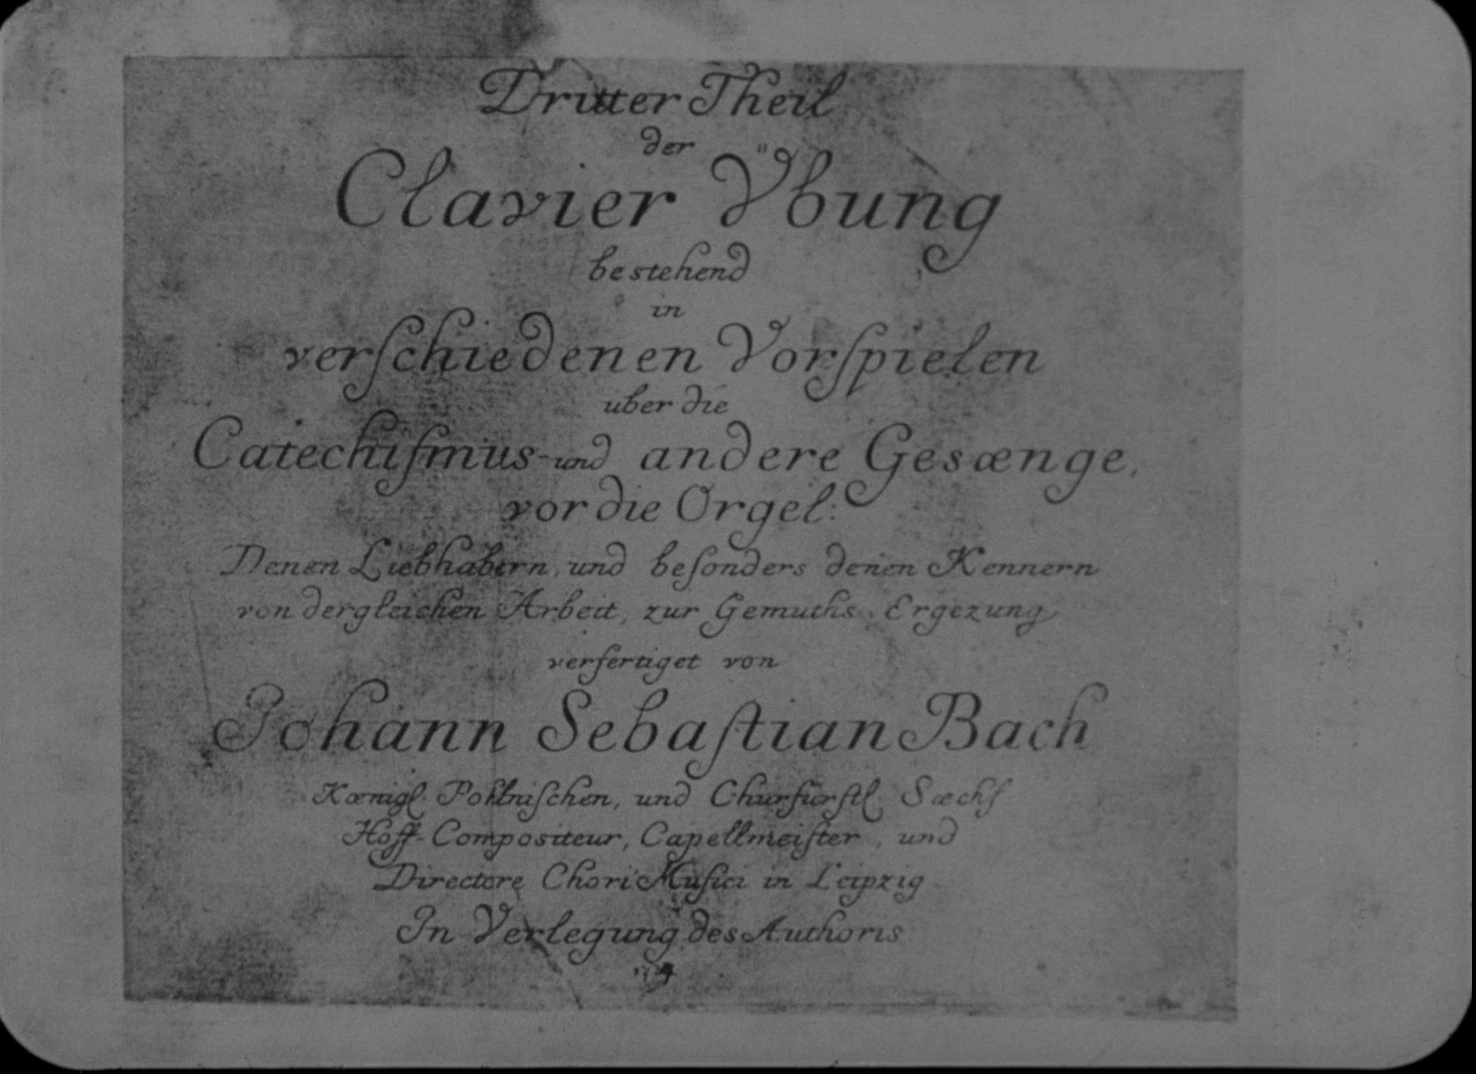 Dritter Theil
der
Clavier Ÿbung
bestehend
in
verſchiedenen Vorſpielen
uber die
Catechiſmus-und andere Gesænge,
vor die Orgel:
Denen Liebhabern, und beſonders denen Kennern
von dergleichen Arbeit, zur Gemuths Ergezung
verfertiget von
Johann Sebaſtian Bach
Kœnigl. Pohlniſchen, und Churfürſtl. Sæchſ.
Hoff-Compositeur, Capellmeiſter, und
Directore Chori Muſici in Leipzig
In Verlegung des Authoris